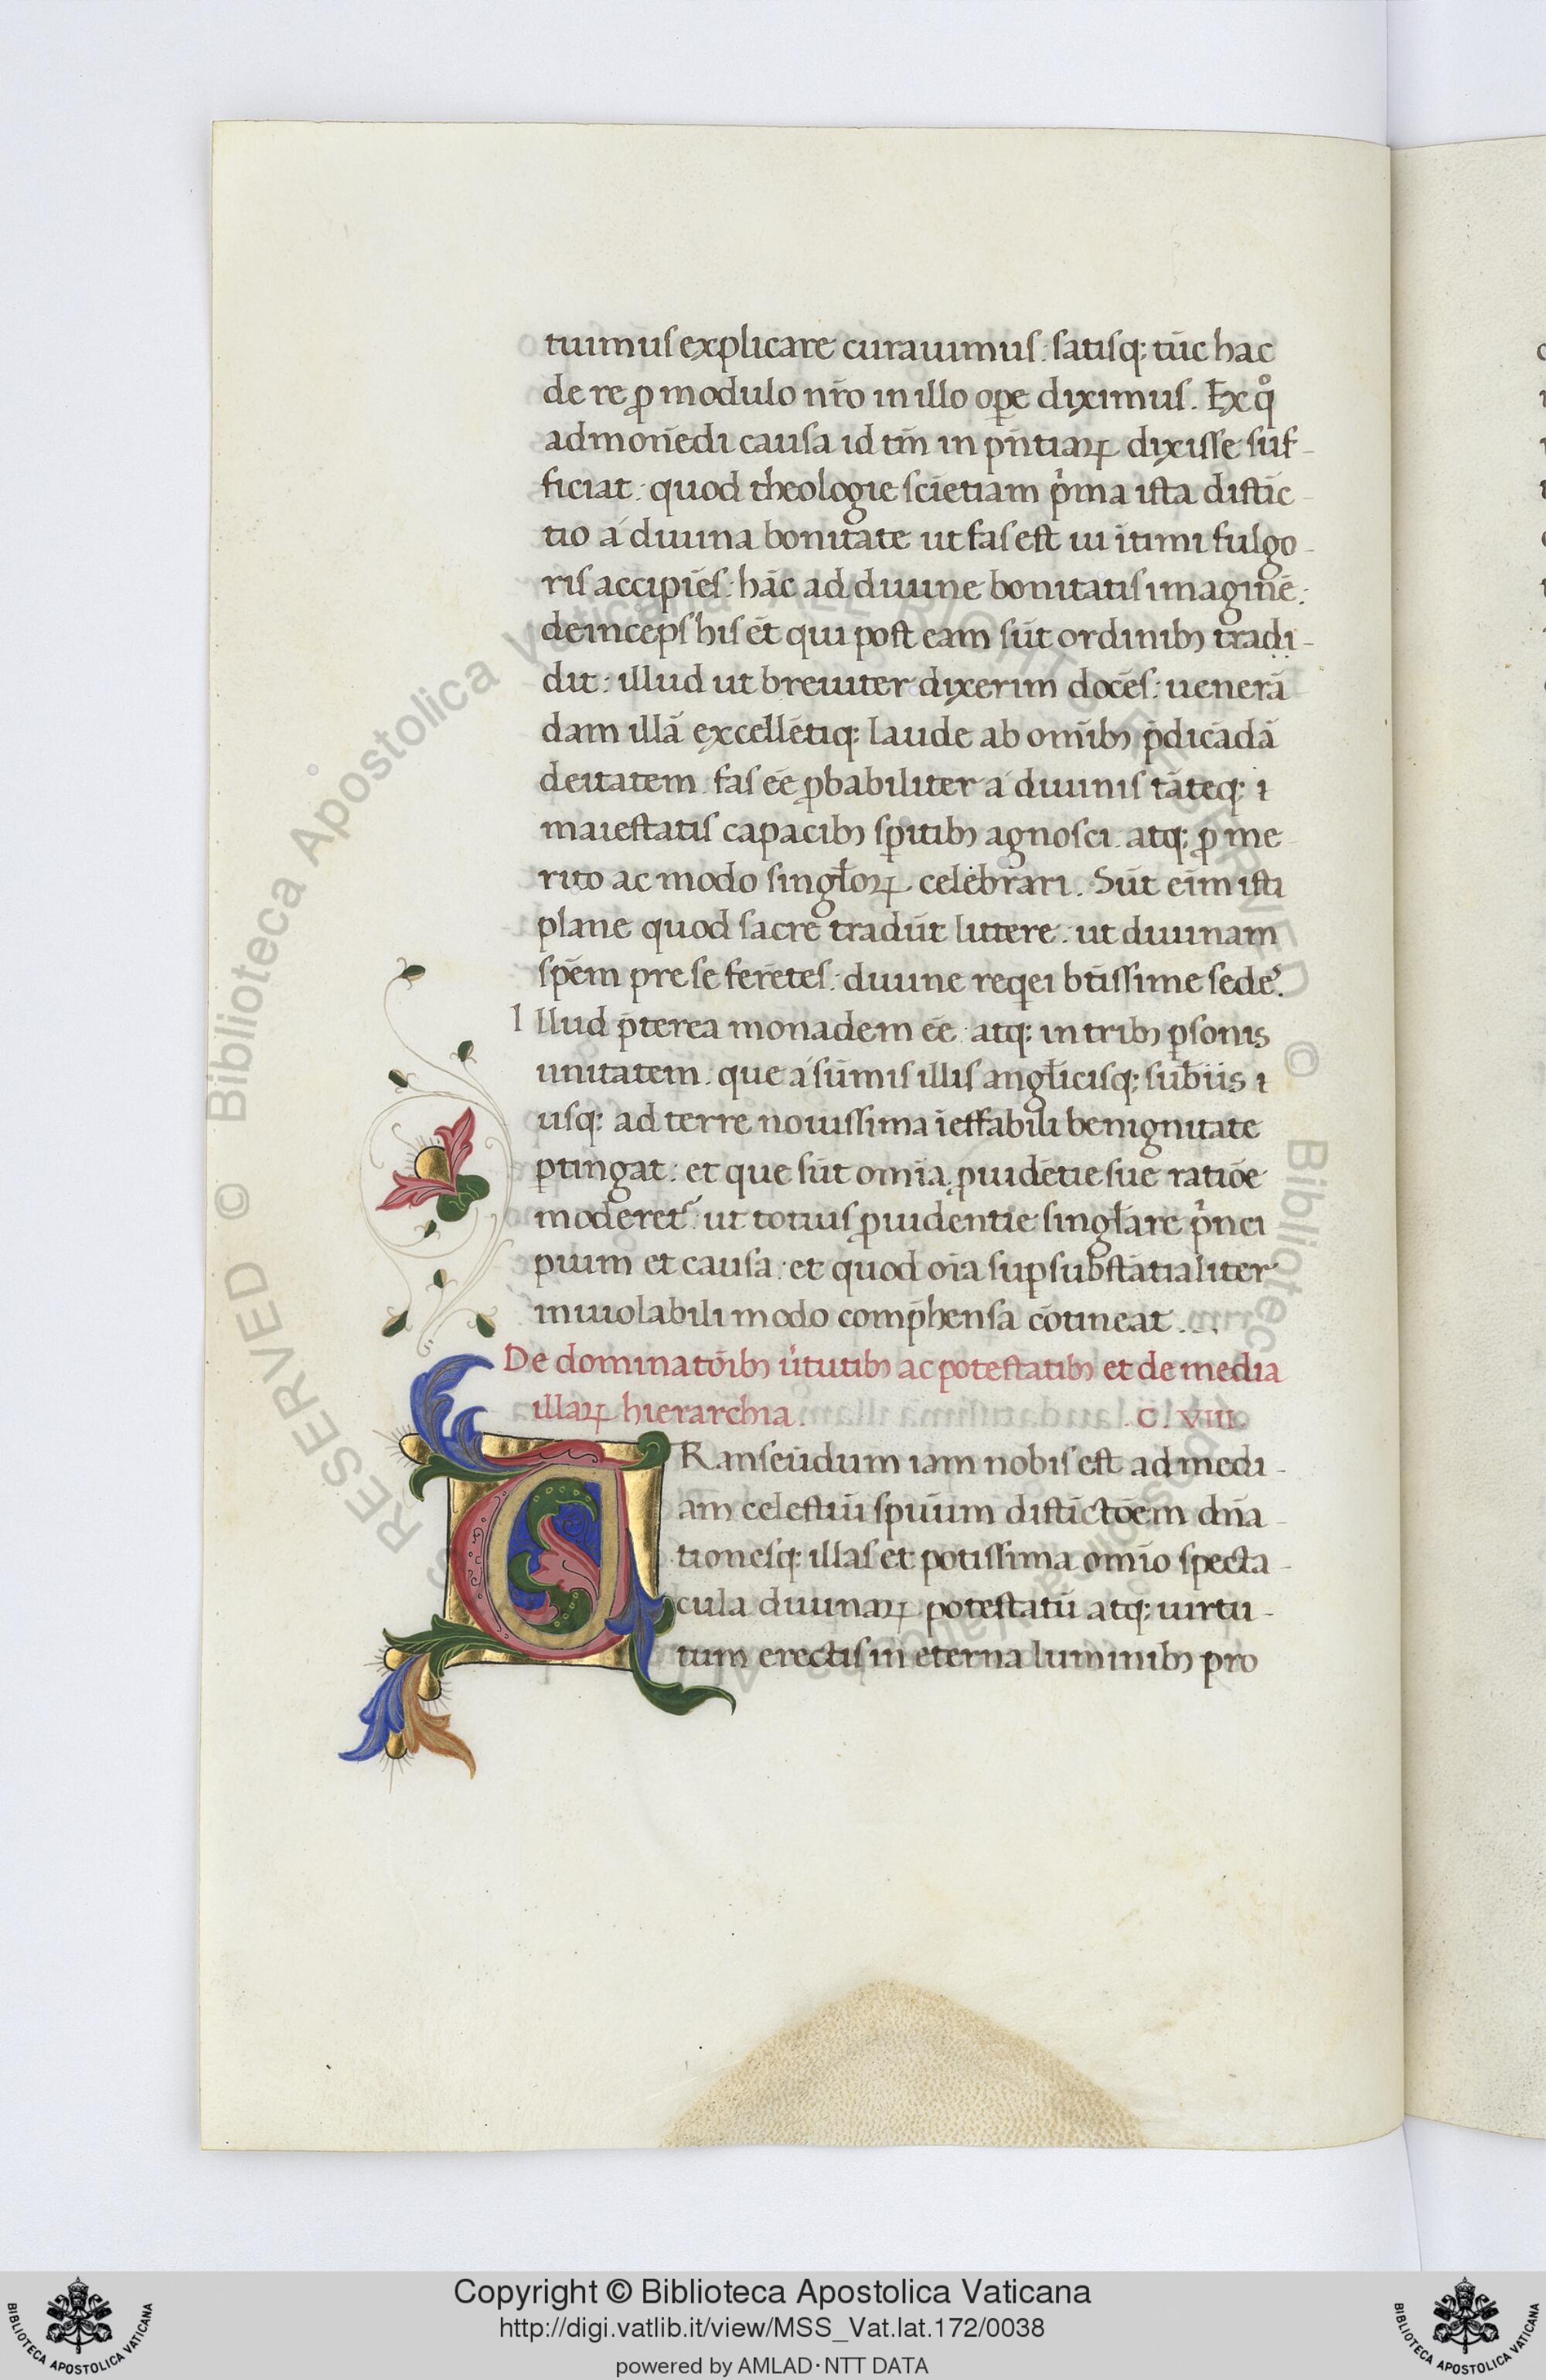 tuimus explicare curauimus: satisq; tūc hac
de re ꝑ modulo nr̄o in illo oꝑe diximus. Ex qͦ
admonēdi causa id tm̄ in pn̄tiaꝝ dixisse suf-
ficiat: quod theologie sciētiam pⁱma ista distīc-
tio a diuina bonitate ut fas est ui ītimi fulgo-
ris accipiēs: hāc ad diuine bonitatis imaginē:
deinceps his ēt qui post eam sūt ordinibꝫ tradi-
dit: illud ut breuiter dixerim docēs: uenerā
dam illā excellētiq; laude ab omībꝫ p̄dicādā
deitatem fas eē ꝓbabiliter a diuinis tāteq; ī
maiestatis capacibꝫ sp̄itibꝫ agnosci. atq; ꝓ me
rito ac modo singłoꝝ celebrari. Sūt eīm isti
plane quod sacre tradūt littere: ut diuinam
spēm pre se ferētes: diuine reqei bt̄issime sedeˢ.
Illud p̄terea monadem eē atq; in tribꝫ ꝑsonis
unitatem. que a sūmis illis angłicisq; sub̄iis ī
usq; ad terre nouissima īeffabili benignitate
ꝑtingat: et que sūt omīa ꝓuidētie sue ratiōe
moderet᷑: ut totius ꝓuidentie singłare pⁱnci
pium et causa: et quod oīa suꝑsubstātialiter
inuiolabili modo comp̄hensa cōtineat. . .
De dominatōībꝫ uⁱtutibꝫ ac potestatibꝫ et de media
illaꝝ hierarchia. C. VIII.
TRanseūdum iam nobis est ad medi-
am celestiū spūum distīctōem dn̄a-
tionesq; illas et potissima omīo specta-
cula diuinaꝝ potestatū atq; uirtu-
tum erectis in eterna luminibꝫ pro
Copyright © Biblioteca Apostolica Vaticana
http://digi.vatlib.it/view/MSS_Vat.lat.172/0038
powered by AMLAD·NTT DATA